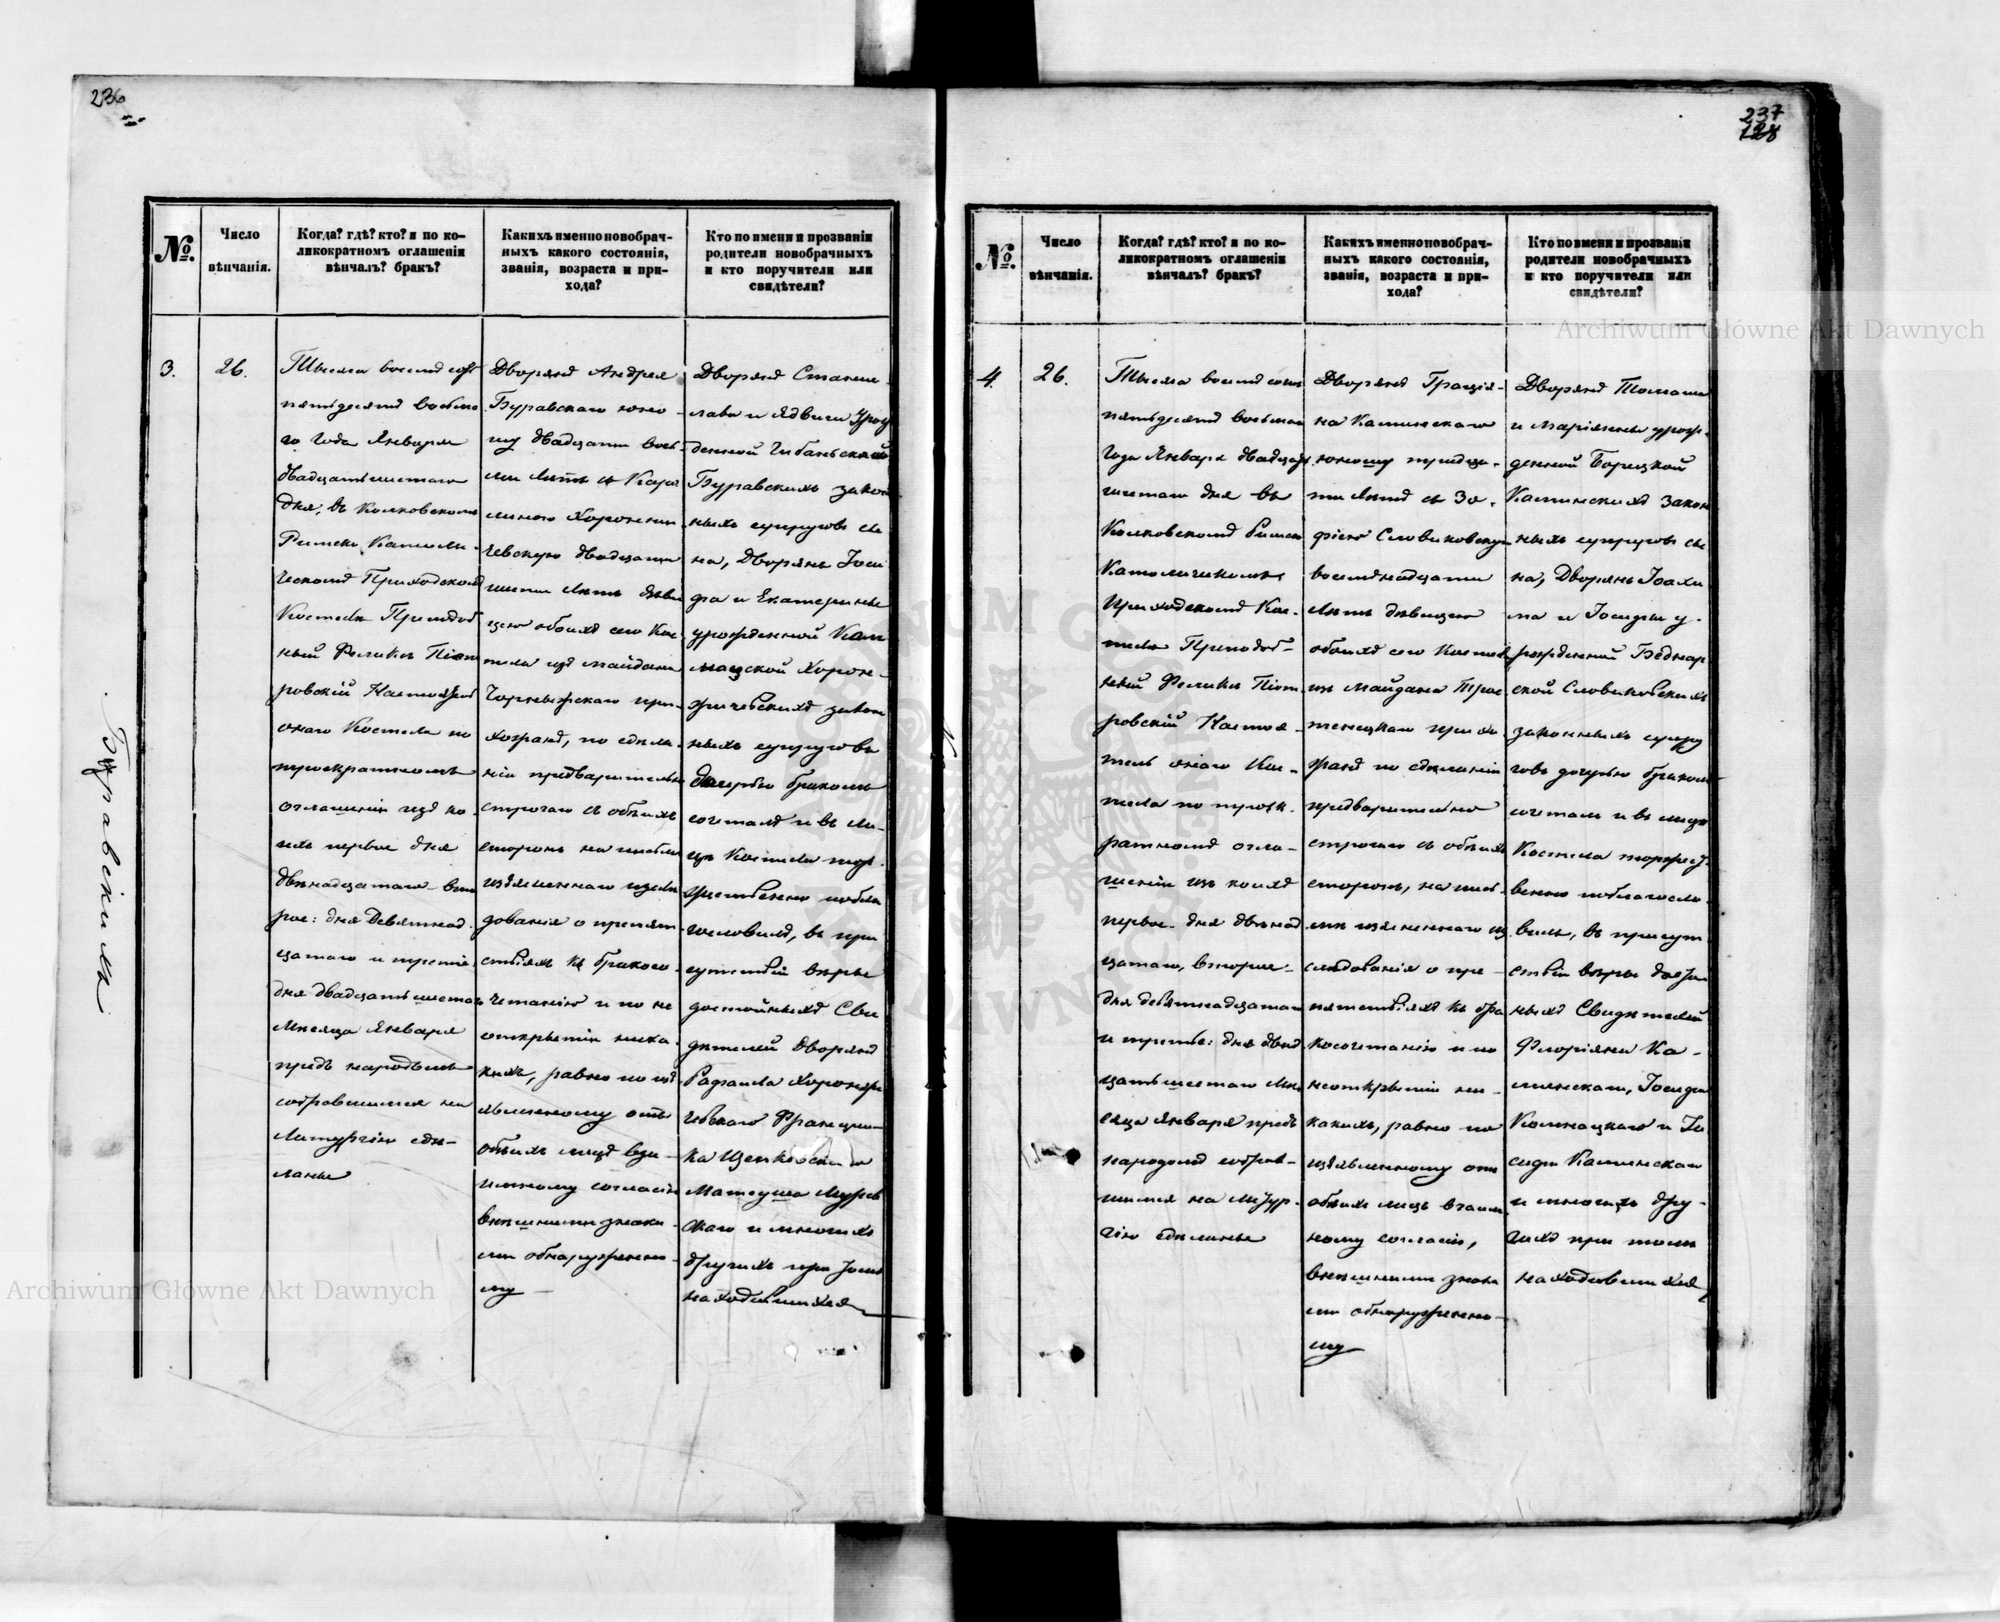 236
№.
Число вѣнчанія.
Когда? гдѣ? кто? и по ко-
ликократномъ оглашеніи
вѣнчалъ? бракъ?
Какихъ именно новобрач-
ныхъ какого состоянія,
званія, возраста и при-
хода?
Кто по имени и прозванію
родители новобрачныхъ
и кто поручители или
свидѣтели?
3.
26.
Тысяча восемьсотъ
пятьдесятъ восьма-
го года Января
двадцатьшестаго
дня, въ Колковскомъ
Римско Католи-
ческомъ Приходскомъ
Костелѣ Преподоб
ный Феликсъ Піот
ровскій Настоятель
онаго Костела по
троекратномъ
оглашеніи изъ ко-
ихъ первое дня
двѣнадцатаго вто
рое: дня Девятнад
цатаго и третіе
дня двадцатьшестаго
Мѣсяца Января
предъ народомъ
собравшимся на
Литургію сдѣ-
ланые
Дворянъ Андрея
Буравскаго юно-
шу двадцати вось
ми лѣтъ съ Каро
линою Хоронжи
чевскую двадцати
шести лѣтъ дѣви
цею обоихъ сего Кос
тела изъ майдана
Чорныжскаго при-
хожанъ, по сдѣла-
ніи предварительно
строгаго съ обѣихъ
сторонъ на письмѣ
изъясненнаго изслѣ
дованія о препят
ствіяхъ къ бракосо-
четанію и по не
открытіи ника-
кихъ, равно по изъ
явленному отъ
обѣихъ лицъ вза-
имному согласію
внѣшними знака-
ми обнаруженно-
му
Дворянъ Станис-
лава и Ядвиги Урож
денной
Буравскихъ закон
ныхъ супруговъ сы
на, Дворянъ Іоси
фа и Екатерины
урожденной
Хорон-
жичевскихъ закон
ныхъ супруговъ
дочерью бракомъ
сочеталъ и въ ли-
цѣ Костела торже
ственно побла
гословилъ, въ при
сутствіи вѣры
достойныхъ Сви
дѣтелей Дворянъ
Рафаила Хоронжи
чевскаго Францис-
ка
Матеуша
и многихъ
другихъ при томъ
находившихся
Буравскихъ
237
128
№.
Число вѣнчанія.
Когда? гдѣ? кто? и по ко-
ликократномъ оглашеніи
вѣнчалъ? бракъ?
Какихъ именно новобрач-
ныхъ какого состоянія,
званія, возраста и при-
хода?
Кто по имени и прозванію
родители новобрачныхъ
и кто поручители или
свидѣтели?
4.
26.
Тысяча восемьсотъ
пятьдесятъ восьмаго
Года Января двадцать
шестаго дня въ
Колковскомъ Римско
Католическомъ
Приходскомъ Кос-
телѣ Преподоб-
ный Феликсъ Піот
ровскій Настоя-
тель онаго Кос-
тела по троек-
ратномъ огла-
шеніи изъ коихъ
первое дня двѣнад
цатаго, второе:
дня девятнадцатаго
и третье: дня двад
цатьшестаго Мѣ
сяца Января предъ
народомъ собрав-
шимся на Литур-
гію сдѣланые
Дворянъ Граціа-
на Каминскаго
юношу тридца-
ти лѣтъ съ Зо-
фіею Словиковскую
восемнадцати
лѣтъ дѣвицею
обоихъ сего Костела
изъ Майдана Трос
тенецкаго прихо
жанъ по сдѣланіи
предварительно
строгаго съ обѣихъ
сторонъ, на пись-
мѣ изъясненнаго из
слѣдованія о пре-
пятствіяхъ къ бра
косочетанію и по
неоткрытіи ни-
какихъ, равно по
изъявленному отъ
обѣихъ лицъ взаим
ному согласію,
внѣшними знака
ми обнаруженно-
му
Дворянъ Томаша
и Маріянны урож-
денной Борецкой
Каминскихъ закон
ныхъ супруговъ сы
на, Дворянъ Іоахи
ма и Іозефы у-
рожденной Беднар
ской Словиковскихъ
законныхъ супру
говъ дочерью бракомъ
сочеталъ и въ лицѣ
Костела торжест
венно поблагосло-
вилъ, въ присут
ствіи вѣры достой
ныхъ Свидѣтелей
Флоріяна Ка-
минскаго, Іосифа
и Іо
сифа Каминскаго
и многихъ дру-
гихъ при томъ
находившихся
Archiwum Główne Akt Dawnych
Archiwum Główne Akt Dawnych